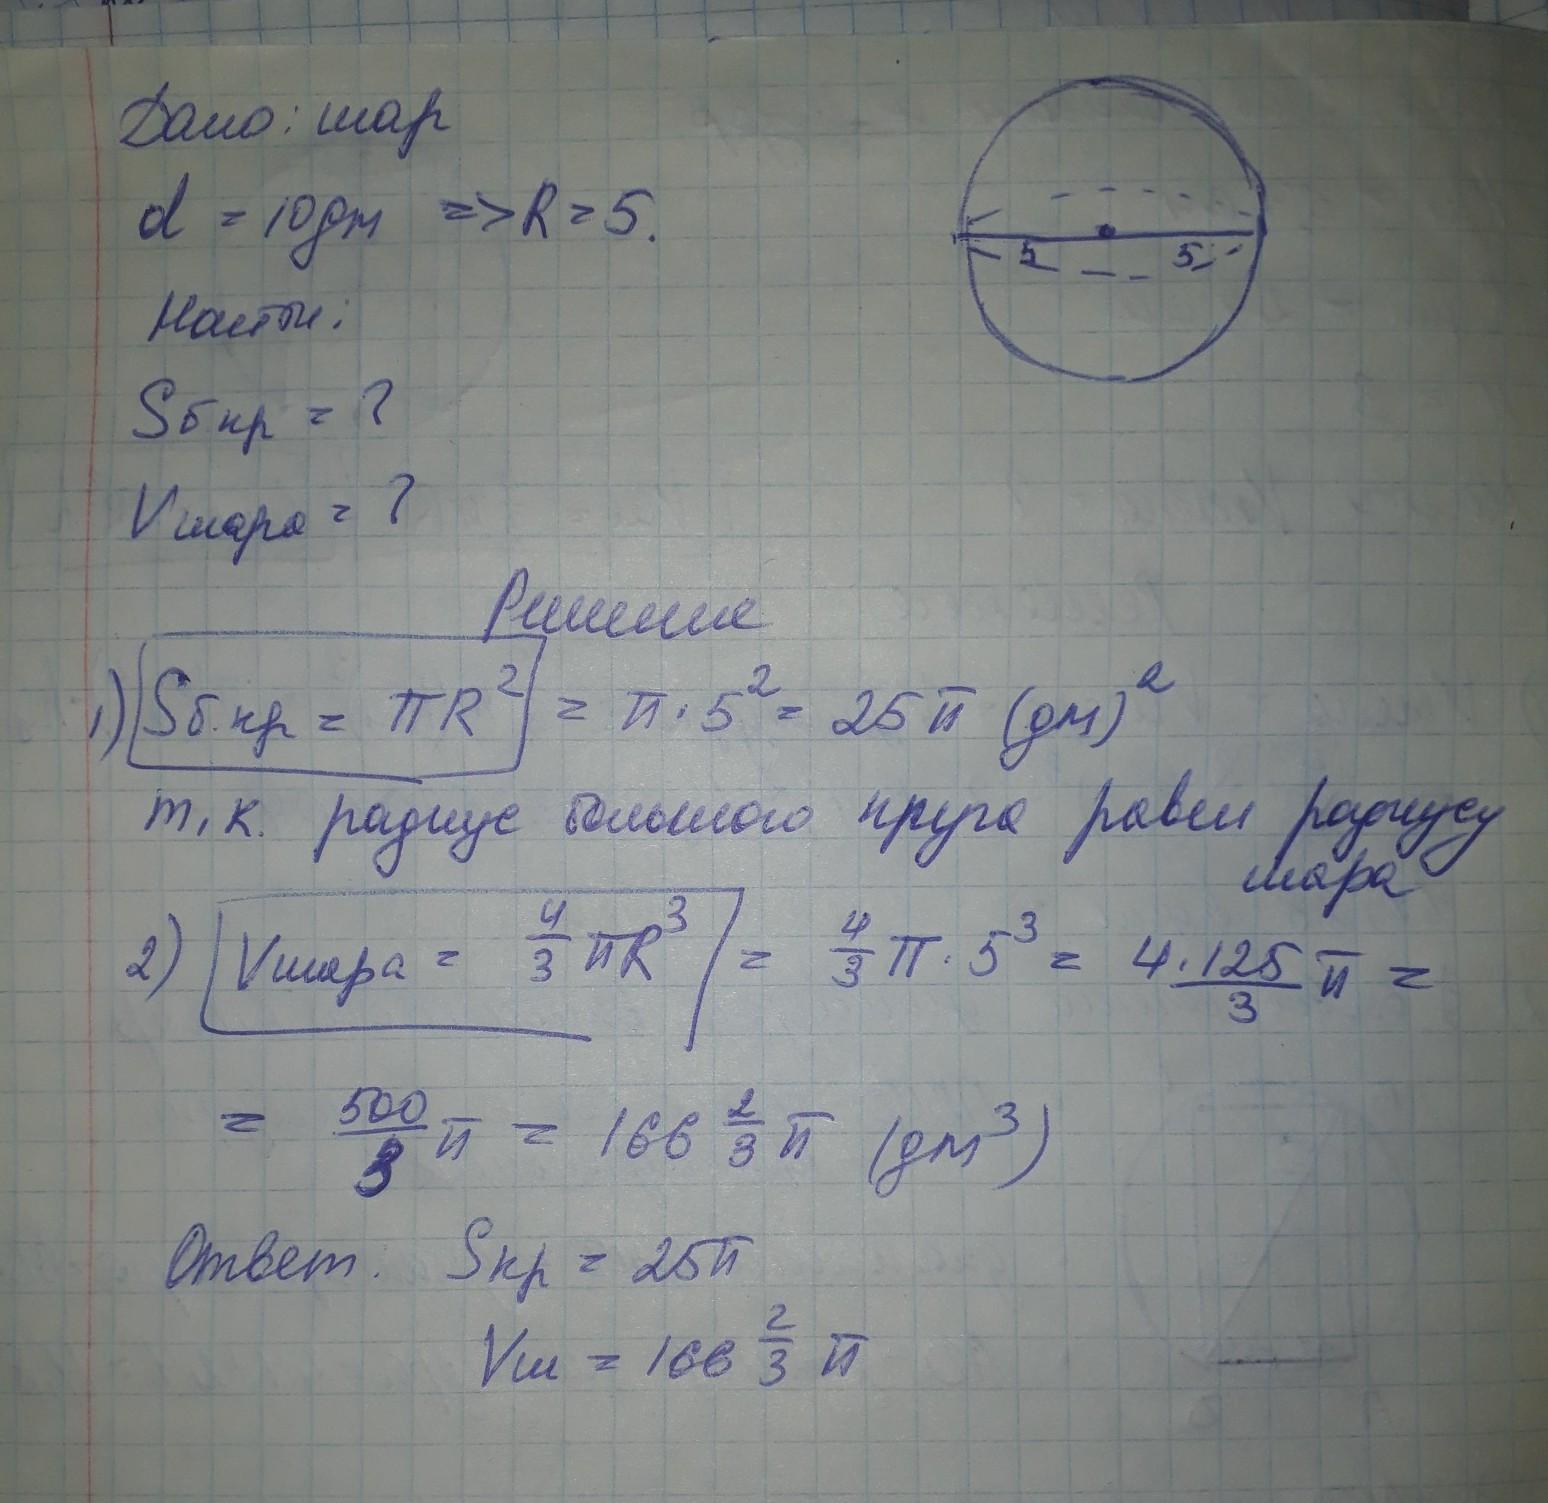 Дано: шар
d = 10дм => R = 5.
5 5
Найти:
Sб кр = ?
Vшара = ?
Решение
1) Sб.кр = πR² = π · 5² = 25π (дм)²
т.к. радиус большого круга равен радиусу
шара
2) Vшара = 4/3 πR³ = 4/3 π · 5³ = 4·125/3 π =
= 500/3 π = 166 2/3 π (дм³)
Ответ. Sкр = 25π
Vш = 166 2/3 π